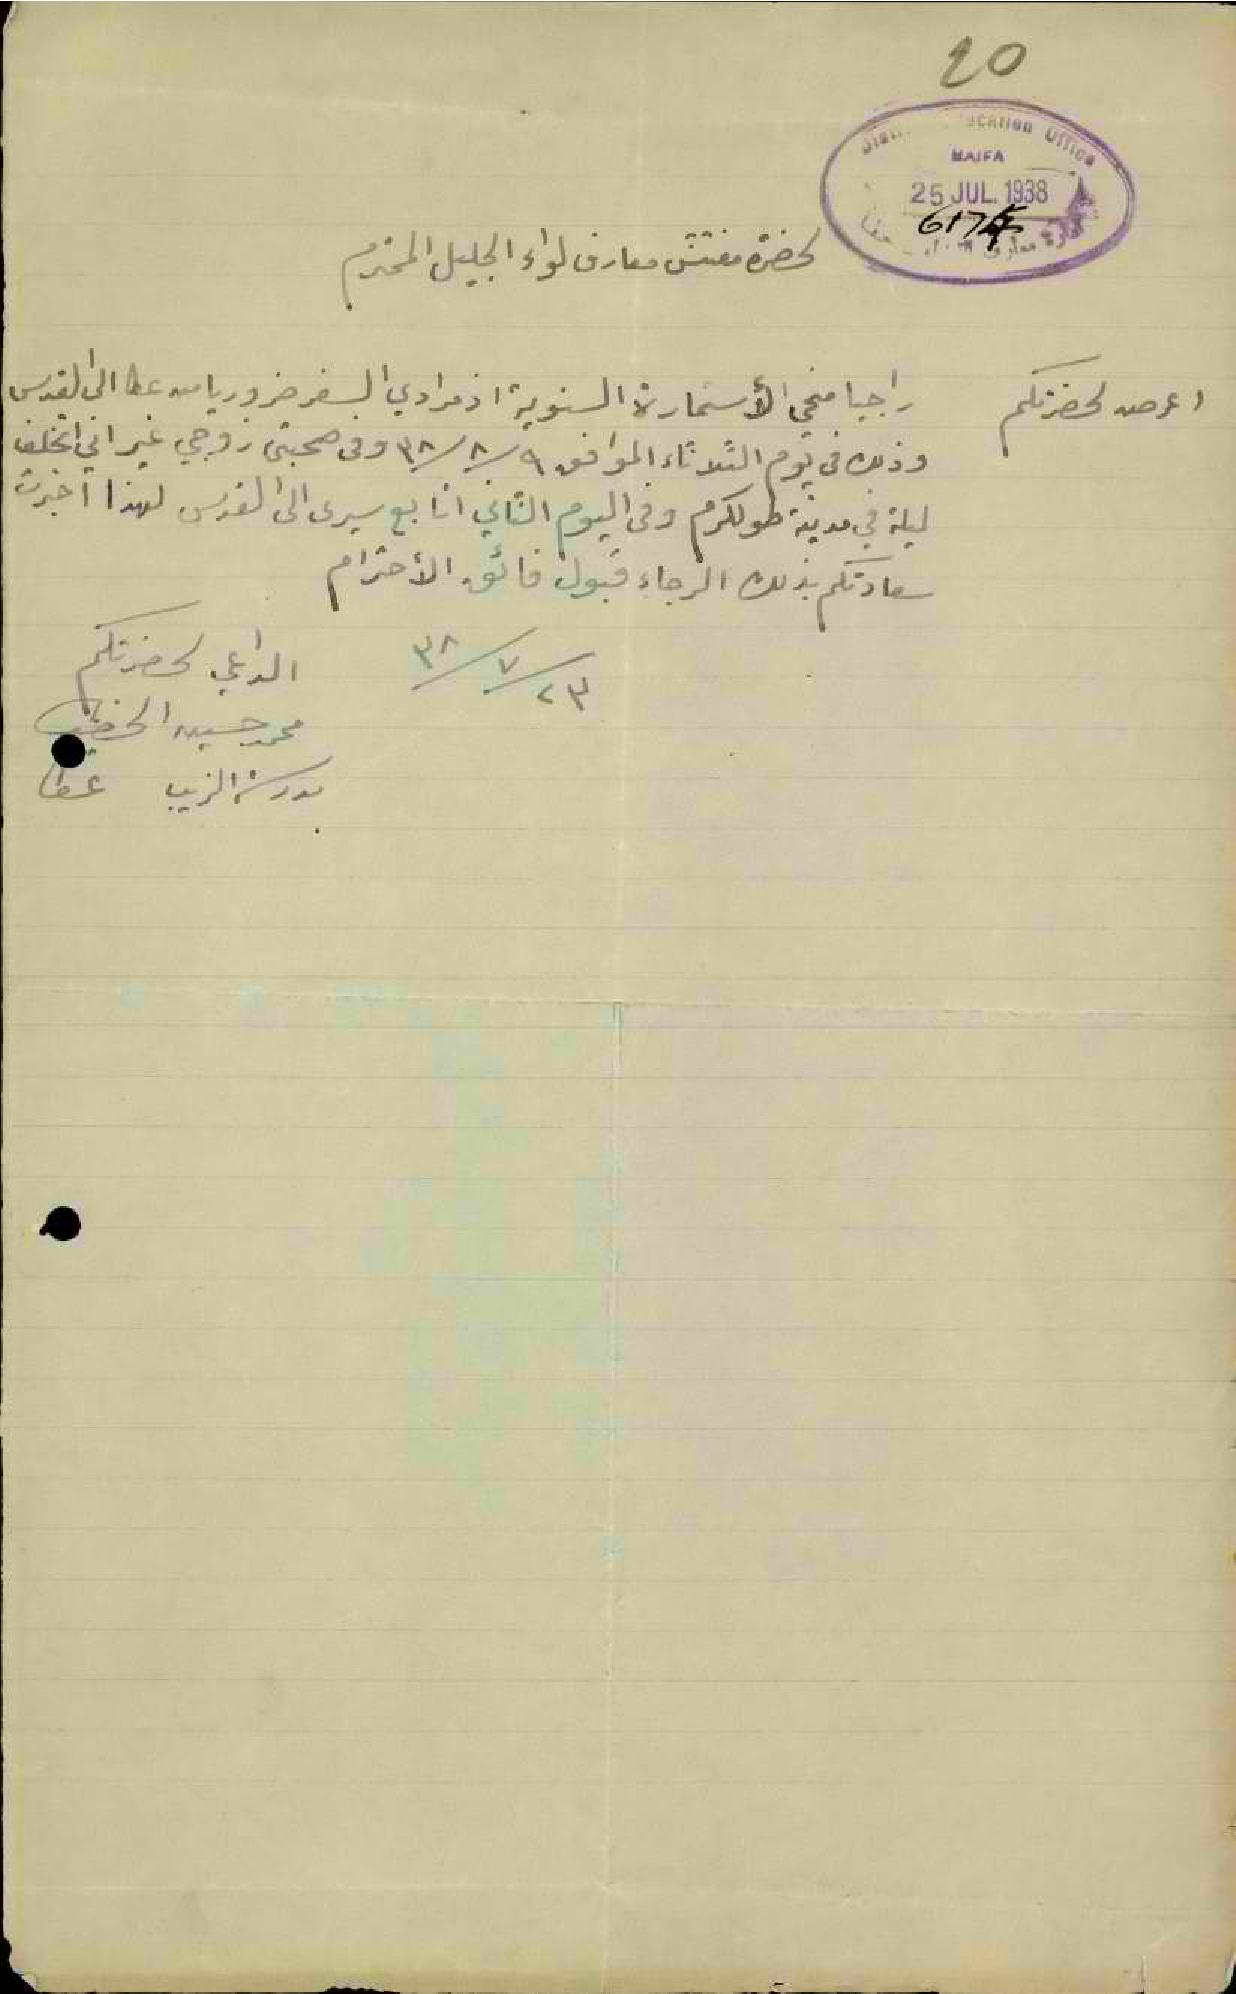 20
District Education Office
HAIFA
25 JUL. 1938
617
لحضرة مفتش معارف لواء الجليل المحترم
اعرض لحضرتكم راجيا منحي الأستمارة السنوية اذ مرادي السفر ضروريا من عكا الى القدس
وذلك في يوم الثلاثاء الموافق ٩/٨/٣٨ وفي صحبتي زوجي غير اني اتخلف
ليلة في مدينة طولكرم وفي اليوم الثاني اتابع سيرى الى القدس لهذا اخبرت
سعادتكم بذلك الرجاء قبول فائق الأحترام
٢٣/٧/٣٨
الداعي لحضرتكم
محمد حسين الخطيب
مدرسة الزيب عكا